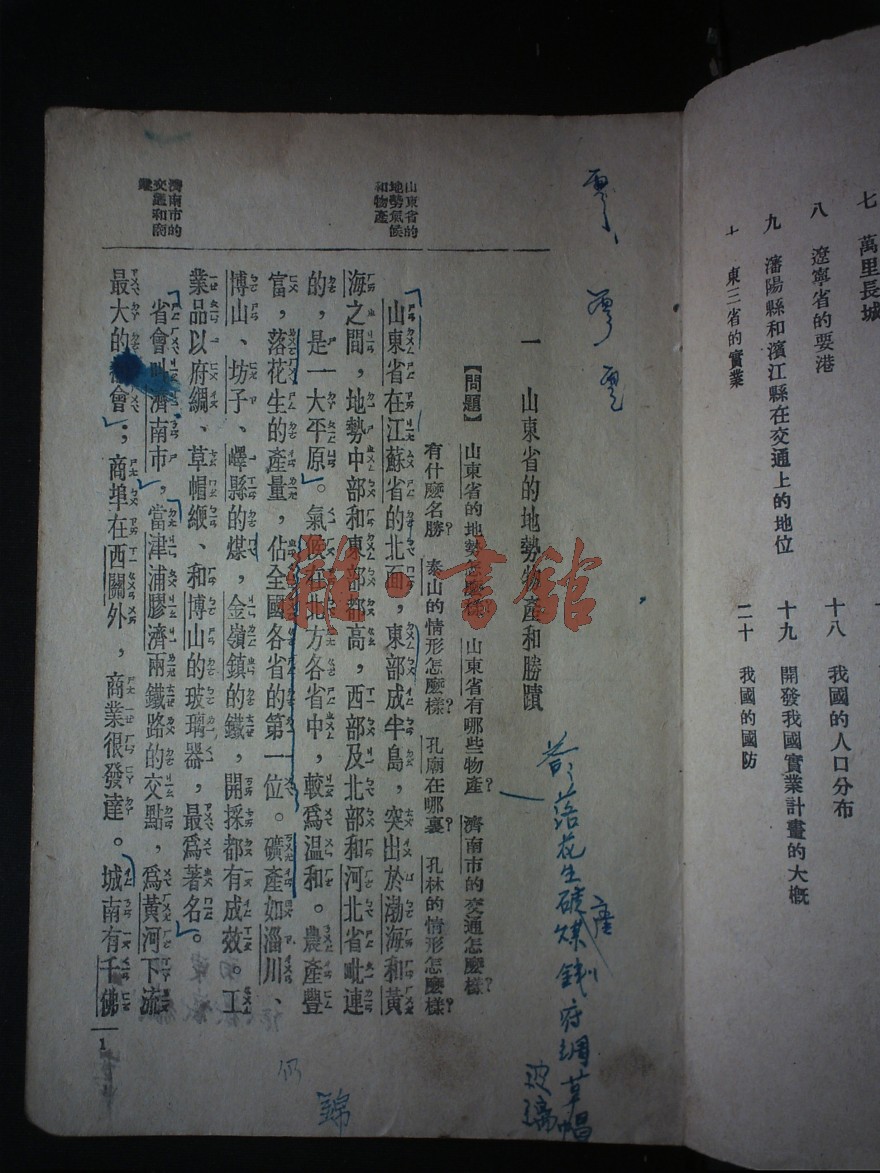 七 萬里長城
八 遼寧省的要港
九 瀋陽縣和濱江縣在交通上的地位
十 東三省的實業
十八 我國的人口分布
十九 開發我國實業計畫的大概
二十 我國的國防
一 山東省的地勢物產和勝蹟
【問題】 山東省的地勢怎麼樣? 山東省有哪些物產? 濟南市的交通怎麼樣?
有什麼名勝? 泰山的情形怎麼樣? 孔廟在哪裏? 孔林的情形怎麼樣?
山東省的
地勢氣候
和物產
山東省在江蘇省的北面,東部成半島,突出於渤海和黃
海之間,地勢中部和東部都高,西部及北部和河北省毗連
的,是一大平原。氣候在北方各省中,較爲溫和。農產豐
富,落花生的產量,佔全國各省的第一位。礦產如淄川、
博山、坊子、嶧縣的煤,金嶺鎮的鐵,開採都有成效。工
業品以府綢、草帽緶、和博山的玻璃器,最爲著名。
濟南市的
交通和商
業
省會濟南市,當津浦膠濟兩鐵路的交點,爲黃河下流
最大的會;商埠在西關外,商業很發達。城南有千佛
1
落花生礦產煤鉄府綢草帽
玻璃
仍
錦
雜·書館